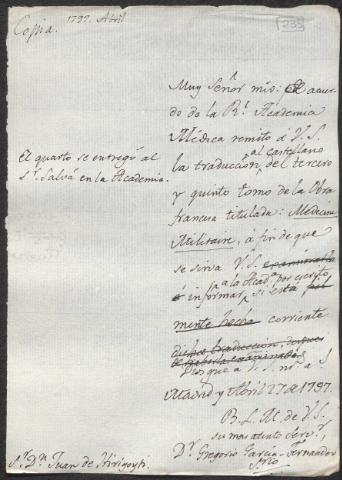 Copia. 1797. Abril
235
Muy Señor mio: De acuer
do de la Rl. Academia
Médica remito á V.S.
la traduccion al castellano del tercero
y quinto tomo de la Obra
francesa titulada: Medecine
Militaire, á fin de que
se sirva V.S. examinarla
é informar á la Acada. por escrito si está
mente hecha corriente
dicha traduccion, despues
de haberla examinado
Dios gue á V.S. ms. as
Madrid y Abril 27 de 1797.
B. L. M. de V.S.
su mas atento Servr.
Dr. Gregorio Garcia Fernandez
Srio
El quarto se entregó al
Sr. Salvá en la Academia.
Sr. Dn. Juan de